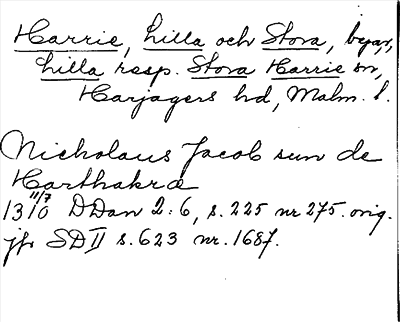 Harrie, Lilla och Stora, byar,
Lilla resp. Stora Harrie sn,
Harjagers hd, Malm. l.
Nicholaus Jacob sun de
Harthakræ
1310 11/7 DDan 2:6, s. 225 nr 275. orig.
jfr SD II s. 623 nr. 1687.